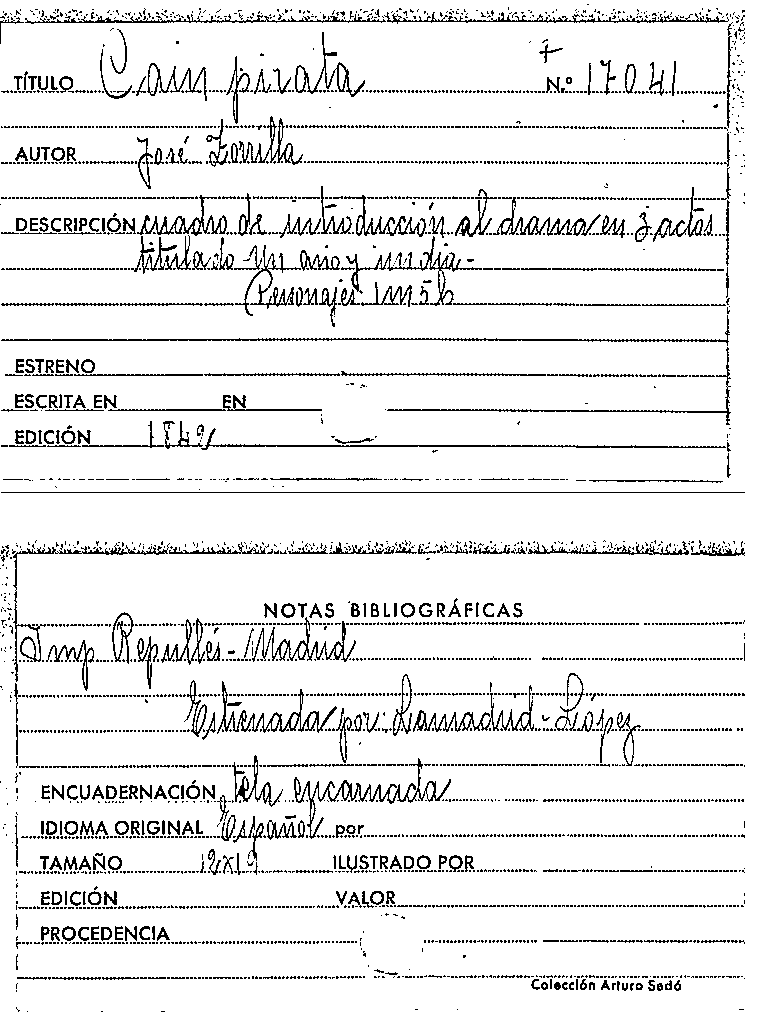 TÍTULO Cain pirata N.º 17041
AUTOR José Zorrilla
DESCRIPCIÓN cuadro de introducción al drama en 3 actos
titulado Un año y un dia-
Personajes 1m 5h
ESTRENO
ESCRITA EN EN
EDICIÓN 1842
NOTAS BIBLIOGRÁFICAS
Imp Repullés - Madrid
Estrenada por: Lamadrid - López
ENCUADERNACIÓN tela encarnada
IDIOMA ORIGINAL Español por
TAMAÑO 12x19 ILUSTRADO POR
EDICIÓN VALOR
PROCEDENCIA
Colección Arturo Sedó